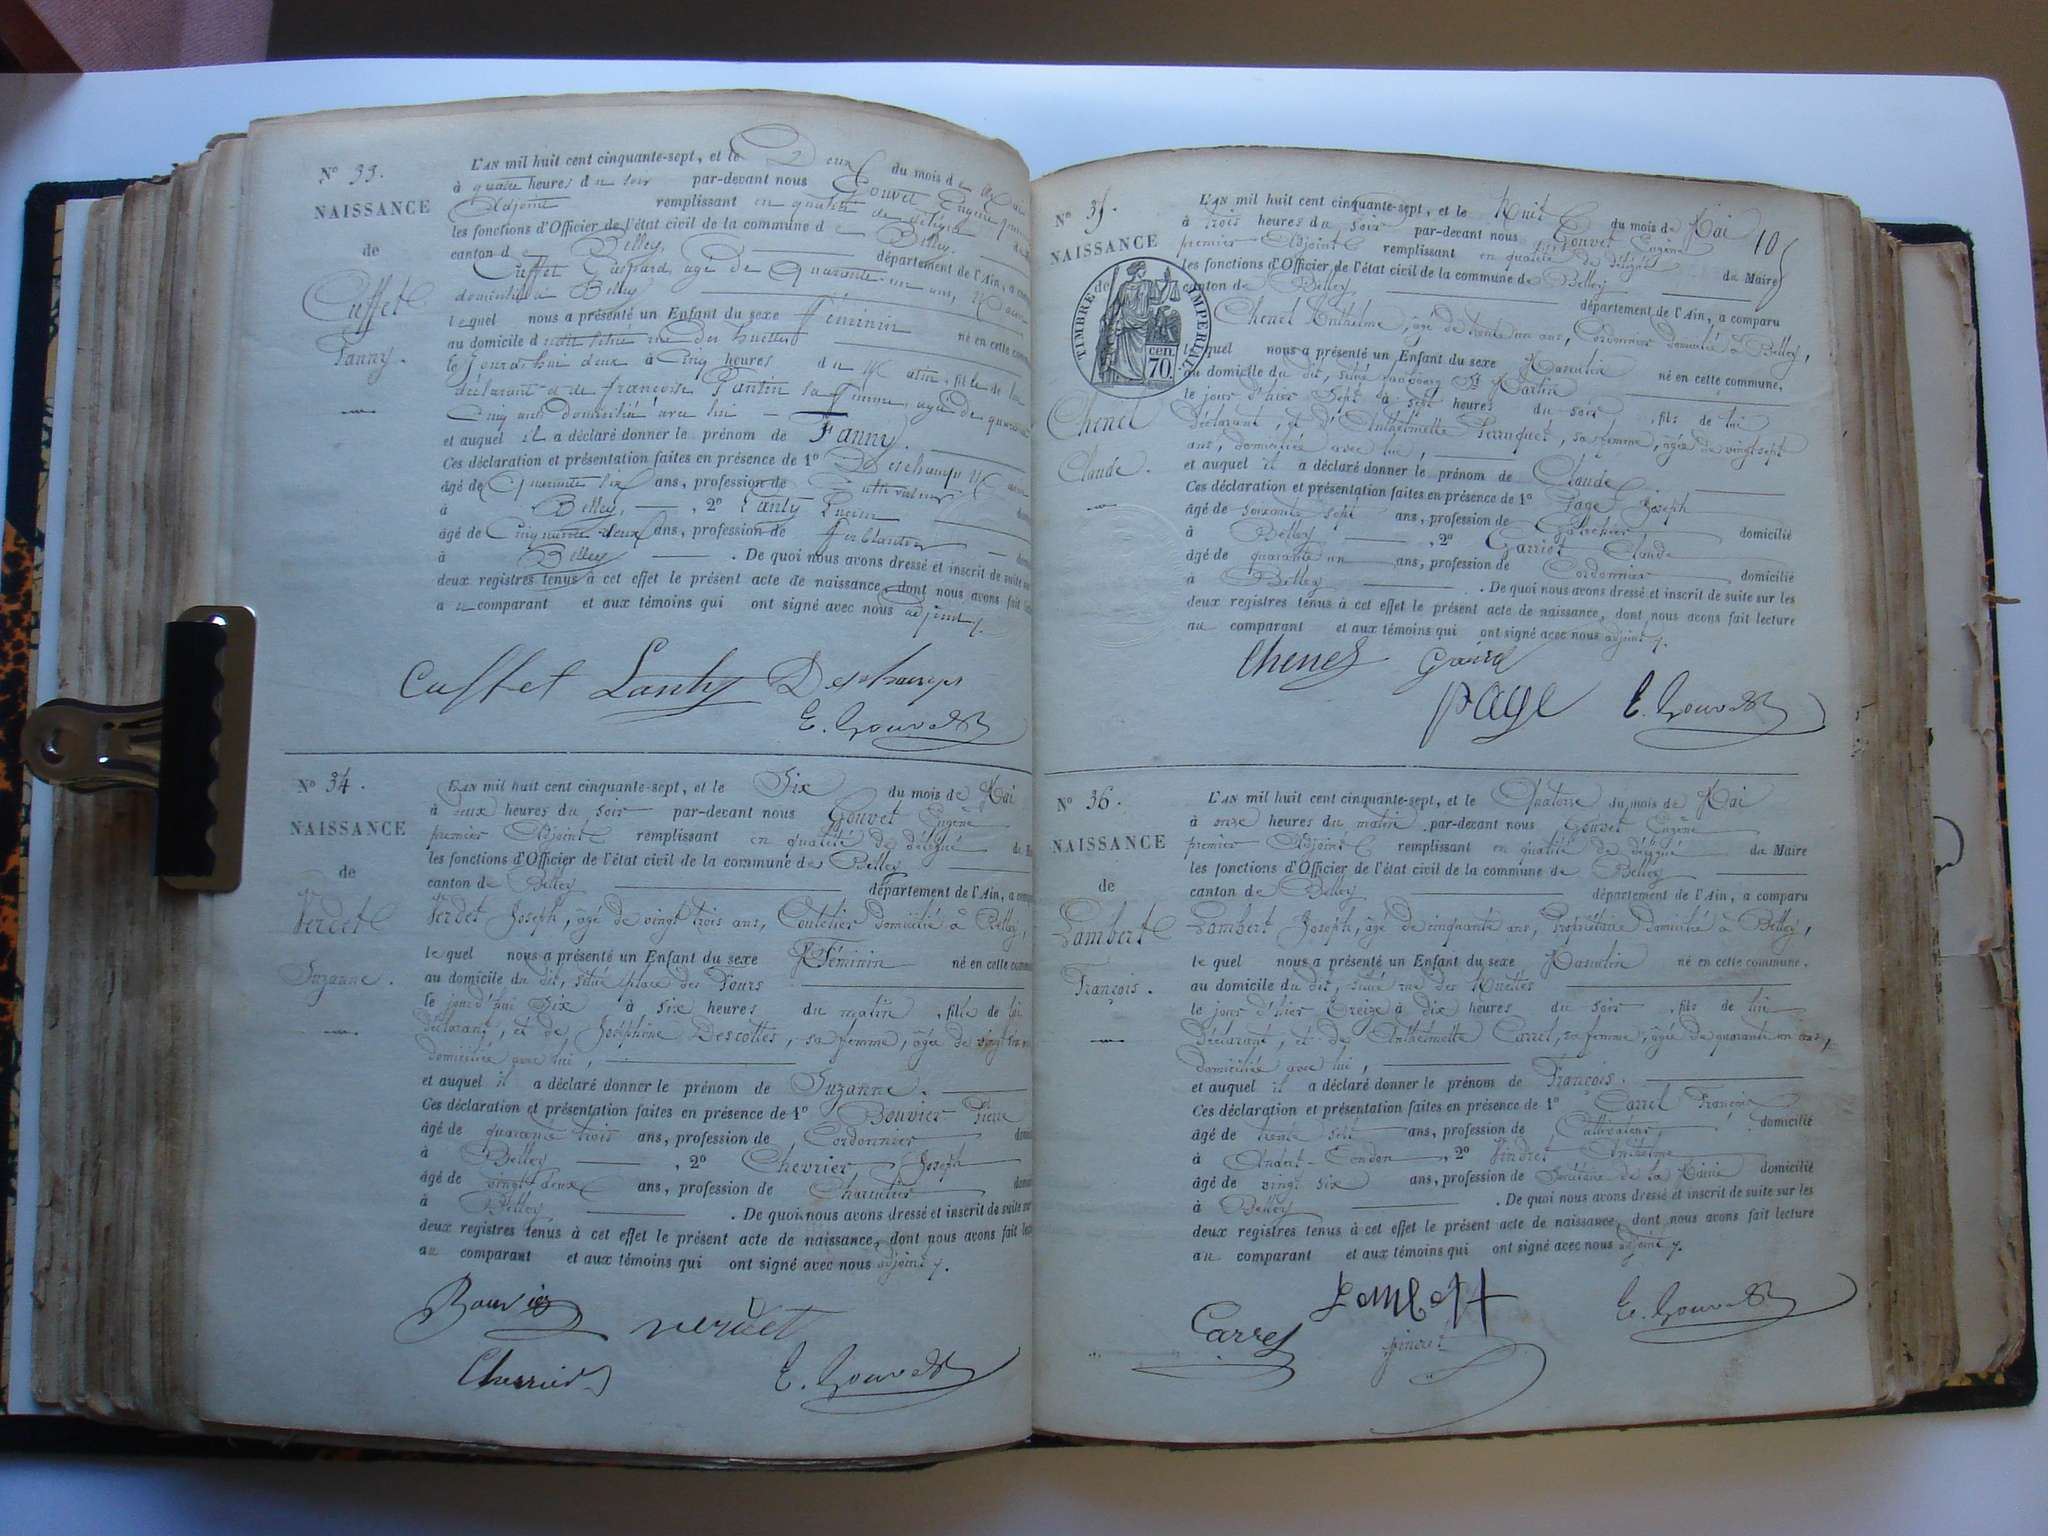 N° 33.
NAISSANCE
de
Cuffet
Fanny.
L'AN mil huit cent cinquante-sept, et le Deux du mois de Mai
à quatre heures du soir par-devant nous Gouvet Eugène
Adjoint remplissant en qualité de délégué
les fonctions d'Officier de l'état civil de la commune de Belley
canton de Belley département de l'Ain, a
Cuffet Gaspard, âgé de Quarante-un ans,
domicilié à Belley
lequel nous a présenté un Enfant du sexe Féminin né en cette
au domicile du situé rue des
le jourd'hui deux à Cinq heures du Matin, fille de lui
déclarant et de françoise Pantin sa femme, agée de
Cinq ans domiciliée avec lui
et auquel il a déclaré donner le prénom de Fanny.
Ces déclaration et présentation faites en présence de 1° Deschamps
âgé de Quarante six ans, profession de
à Belley, 2° Lanty
âgé de Cinquante-deux ans, profession de Ferblantier
à Belley. De quoi nous avons dressé et inscrit de suite sur
deux registres tenus à cet effet le présent acte de naissance, dont nous avons fait
au comparant et aux témoins qui ont signé avec nous adjoint
Cuffet Lanty Deschamps
E. Gouvet
N° 34.
NAISSANCE
de
Verdet
Suzanne.
L'AN mil huit cent cinquante-sept, et le Six du mois de Mai
à deux heures du soir par-devant nous Gouvet Eugène
premier Adjoint remplissant en qualité de délégué
les fonctions d'Officier de l'état civil de la commune de Belley
canton de Belley département de l'Ain, a
Verdet Joseph, âgé de vingt trois ans, Coutelier domicilié à Belley,
lequel nous a présenté un Enfant du sexe Féminin né en cette
au domicile du dit, situé place des Fours
le jourd'hui Six à six heures du matin, fille de lui
déclarant, et de Joséphine Descottes, sa femme, âgée de
domiciliée avec lui,
et auquel il a déclaré donner le prénom de Suzanne.
Ces déclaration et présentation faites en présence de 1° Bouvier Pierre
âgé de quarante trois ans, profession de Cordonnier
à Belley, 2° Chevrier Joseph
âgé de vingt deux ans, profession de Charcutier
à Belley. De quoi nous avons dressé et inscrit de suite sur
deux registres tenus à cet effet le présent acte de naissance, dont nous avons fait
au comparant et aux témoins qui ont signé avec nous adjoint
Bouvier verdet
Chevrier E. Gouvet
N° 35.
NAISSANCE
de
Chenel
Claude.
TIMBRE IMPERIAL
70. cen.
105
L'AN mil huit cent cinquante-sept, et le Huit du mois de Mai
à trois heures du soir par-devant nous Gouvet Eugène
premier Adjoint remplissant en qualité de délégué du Maire
les fonctions d'Officier de l'état civil de la commune de Belley
canton de Belley département de l'Ain, a comparu
Chenel Anthelme, âgé de trente un ans, Cordonnier domicilié à Belley,
lequel nous a présenté un Enfant du sexe Masculin né en cette commune,
au domicile du dit, situé faubourg St Martin
le jour d'hier Sept à sept heures du soir, fils de lui
déclarant, et d'Anthelmette Perruquet, sa femme, âgée de vingt sept
ans, domiciliée avec lui,
et auquel il a déclaré donner le prénom de Claude
Ces déclaration et présentation faites en présence de 1° Page Joseph
âgé de soixante sept ans, profession de domicilié
à Belley, 2° Claude
âgé de quarante un ans, profession de Cordonnier domicilié
à Belley. De quoi nous avons dressé et inscrit de suite sur les
deux registres tenus à cet effet le présent acte de naissance, dont nous avons fait lecture
au comparant et aux témoins qui ont signé avec nous adjoint
Chenel
page E. Gouvet
N° 36.
NAISSANCE
de
Lambert
François.
L'AN mil huit cent cinquante-sept, et le Quatorze du mois de Mai
à onze heures du matin par-devant nous Gouvet Eugène
premier Adjoint remplissant en qualité de délégué du Maire
les fonctions d'Officier de l'état civil de la commune de Belley
canton de Belley département de l'Ain, a comparu
Lambert Joseph, âgé de cinquante ans, Propriétaire domicilié à Belley,
lequel nous a présenté un Enfant du sexe Masculin né en cette commune.
au domicile du dit, situé rue des
le jour d'hier treize à dix heures du soir, fils de lui
déclarant, et de Anthelmette Carrel, sa femme, âgée de quarante un ans,
domiciliée avec lui,
et auquel il a déclaré donner le prénom de François.
Ces déclaration et présentation faites en présence de 1° Carrel François
âgé de trente sept ans, profession de Cultivateur, domicilié
à Andert-Condon, 2° Pindret Anthelme
âgé de vingt six ans, profession de Secrétaire de la Mairie domicilié
à Belley. De quoi nous avons dressé et inscrit de suite sur les
deux registres tenus à cet effet le présent acte de naissance, dont nous avons fait lecture
au comparant et aux témoins qui ont signé avec nous adjoint
Lambert
Carrel pindret E. Gouvet